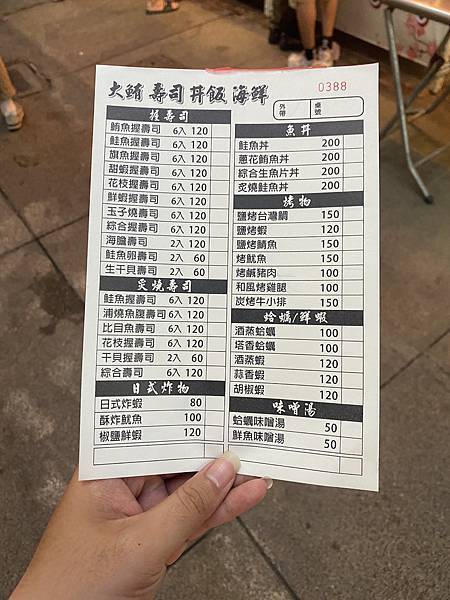 大鮪壽司丼飯海鮮
0388
外帶
桌號
握壽司
鮪魚握壽司 6入 120
鮭魚握壽司 6入 120
旗魚握壽司 6入 120
甜蝦握壽司 6入 120
花枝握壽司 6入 120
鮮蝦握壽司 6入 120
玉子燒壽司 6入 120
綜合握壽司 6入 120
海膽壽司 2入 120
鮭魚卵壽司 2入 60
生干貝壽司 2入 60
炙燒壽司
鮭魚握壽司 6入 120
浦燒魚腹壽司 6入 120
比目魚壽司 6入 120
花枝握壽司 6入 120
干貝握壽司 2入 60
綜合壽司 6入 120
日式炸物
日式炸蝦 80
酥炸魷魚 100
椒鹽鮮蝦 120
魚丼
鮭魚丼 200
蔥花鮪魚丼 200
綜合生魚片丼 200
炙燒鮭魚丼 200
烤物
鹽烤台灣鯛 150
鹽烤蝦 120
鹽烤鯖魚 150
烤魷魚 150
烤鹹豬肉 100
和風烤雞腿 100
炭烤牛小排 150
蛤蠣/鮮蝦
酒蒸蛤蠣 100
塔香蛤蠣 100
酒蒸蝦 120
蒜香蝦 120
胡椒蝦 120
味噌湯
蛤蠣味噌湯 50
鮮魚味噌湯 50